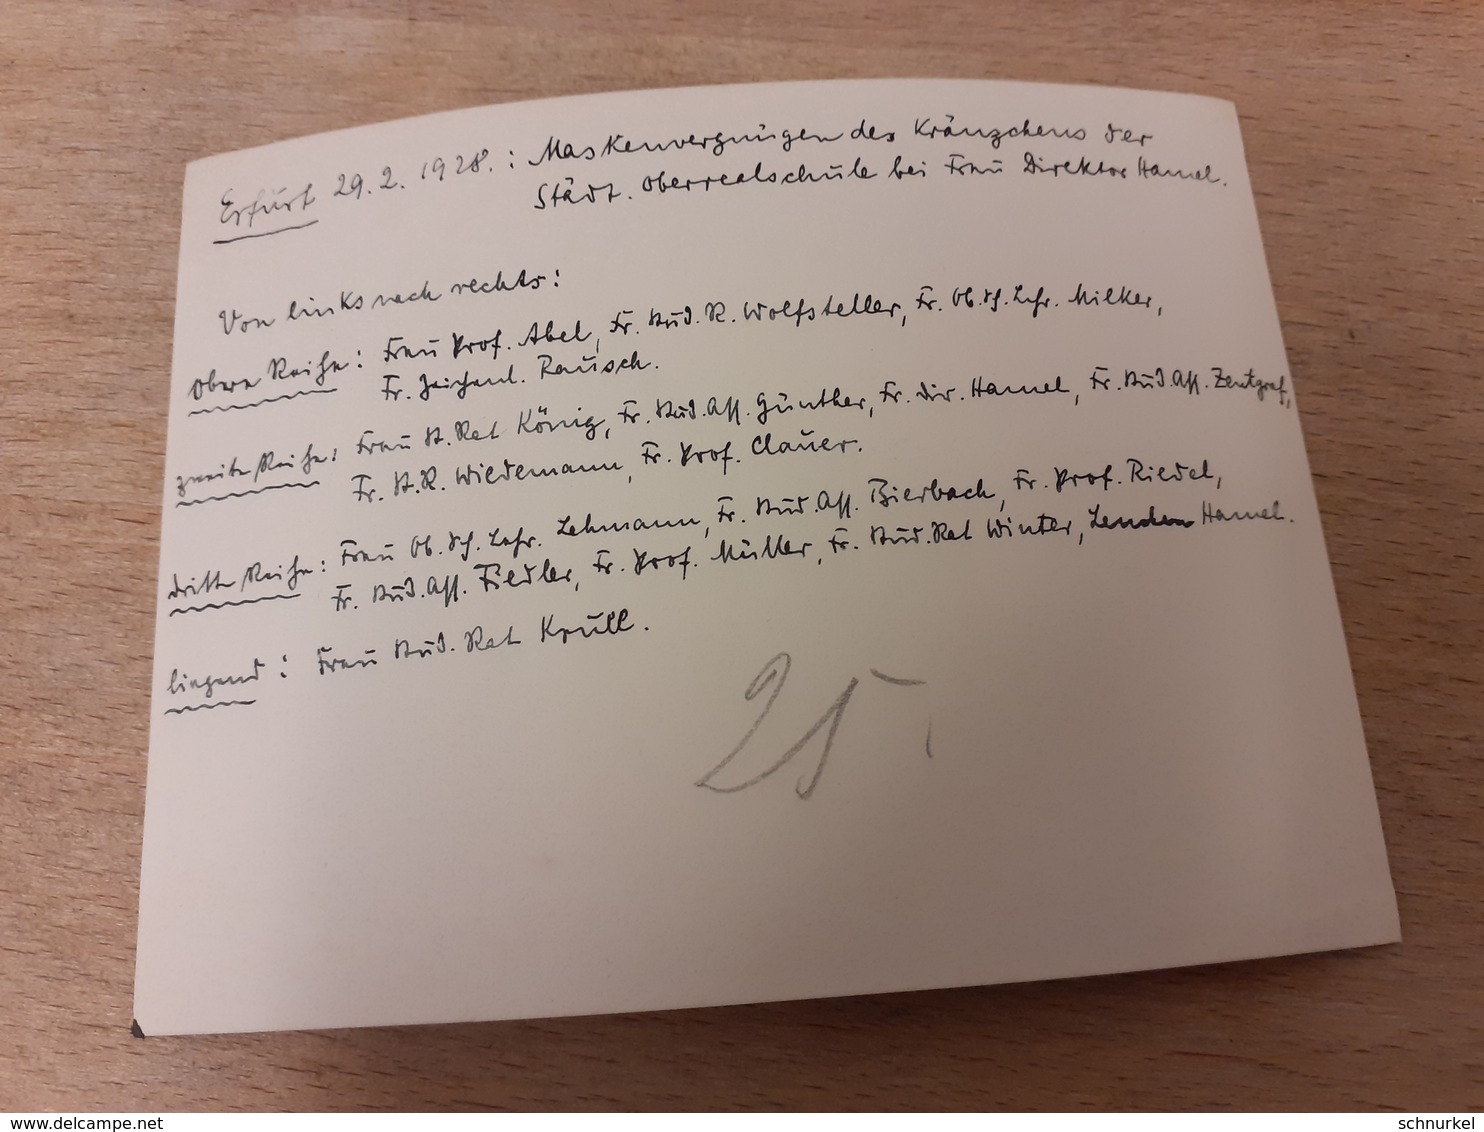 Erfurt 29.2.1928.: Maskenvergnügen des Kränzchens der
Städt. Oberrealschule bei Frau Direktor Hamel.
Von links nach rechts:
Obere Reihe: Frau Prof. Abel, Fr. Stud. R. Wolfsteller, Fr. Ob. Sch. Lehr. Milker,
Fr. Zeichenl. Rausch.
zweite Reihe: Frau St. Rat König, Fr. Stud. Ass. Günther, Fr. Dir. Hamel, Fr. Stud. Ass. Zentgraf,
Fr. St. R. Wiedemann, Fr. Prof. Clauer.
dritte Reihe: Frau Ob. Sch. Lehr. Lehmann, Fr. Stud. Ass. Bierbach, Fr. Prof. Riedel,
Fr. Stud. Ass. Fiedler, Fr. Prof. Müller, Fr. Stud. Rat Winter, Hamel.
liegend: Frau Stud. Rat Krull.
25
delcampe.net
schnurkel